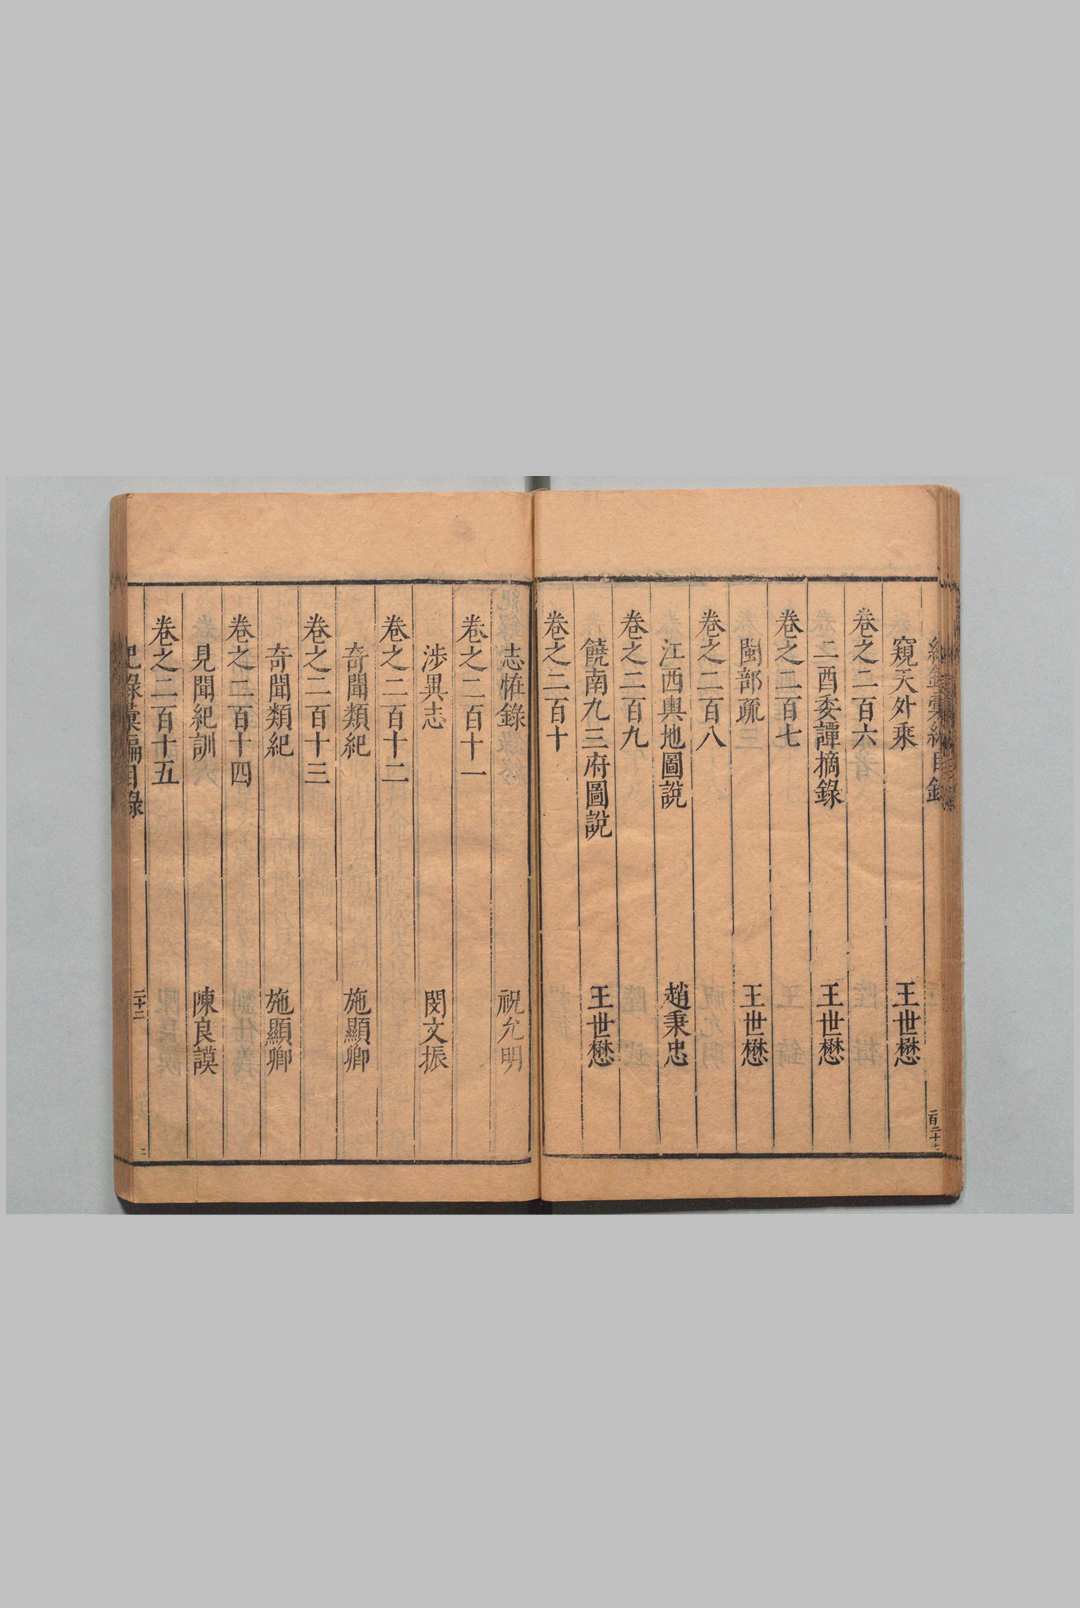 窺天外乘 王世懋
卷之二百六
二酉委譚摘錄 王世懋
卷之二百七
閩部疏 王世懋
卷之二百八
江西輿地圖說 趙秉忠
卷之二百九
饒南九三府圖說 王世懋
卷之二百十
志恠錄 祝允明
卷之二百十一
涉異志 閔文振
卷之二百十二
奇聞類紀 施顯卿
卷之二百十三
奇聞類紀 施顯卿
卷之二百十四
見聞紀訓 陳良謨
卷之二百十五
紀錄彙編目錄 二十二